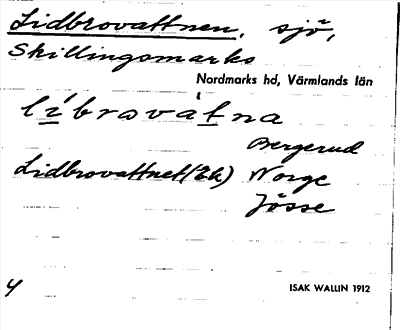 Lidbrovattnen, sjö,
Skillingsmarks
Nordmarks hd, Värmlands län
lí̱brova̍ṯna
Bergerud
Lidbrovattnet (Ek) Norge
Jösse
4
ISAK WALLIN 1912